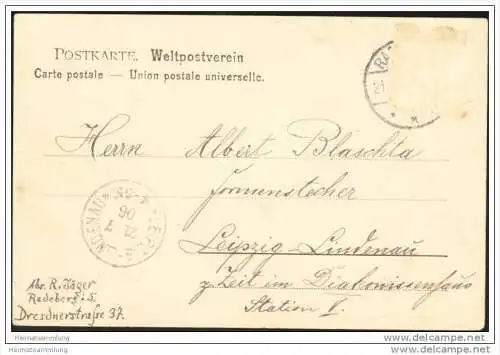 POSTKARTE. Weltpostverein
Carte postale — Union postale universelle.
RA
21
*
Herrn Albert Blaschta
Formenstecher
Leipzig-Lindenau
z Zeit im Diakonissenhaus
Station V.
LEIPZ
LINDENAU
22 7
06
4-5N
Abs. R. Jäger
Radeberg i. S.
Dresdnerstraße 37.
Heimatsammlung
www.heimatsammlung.de